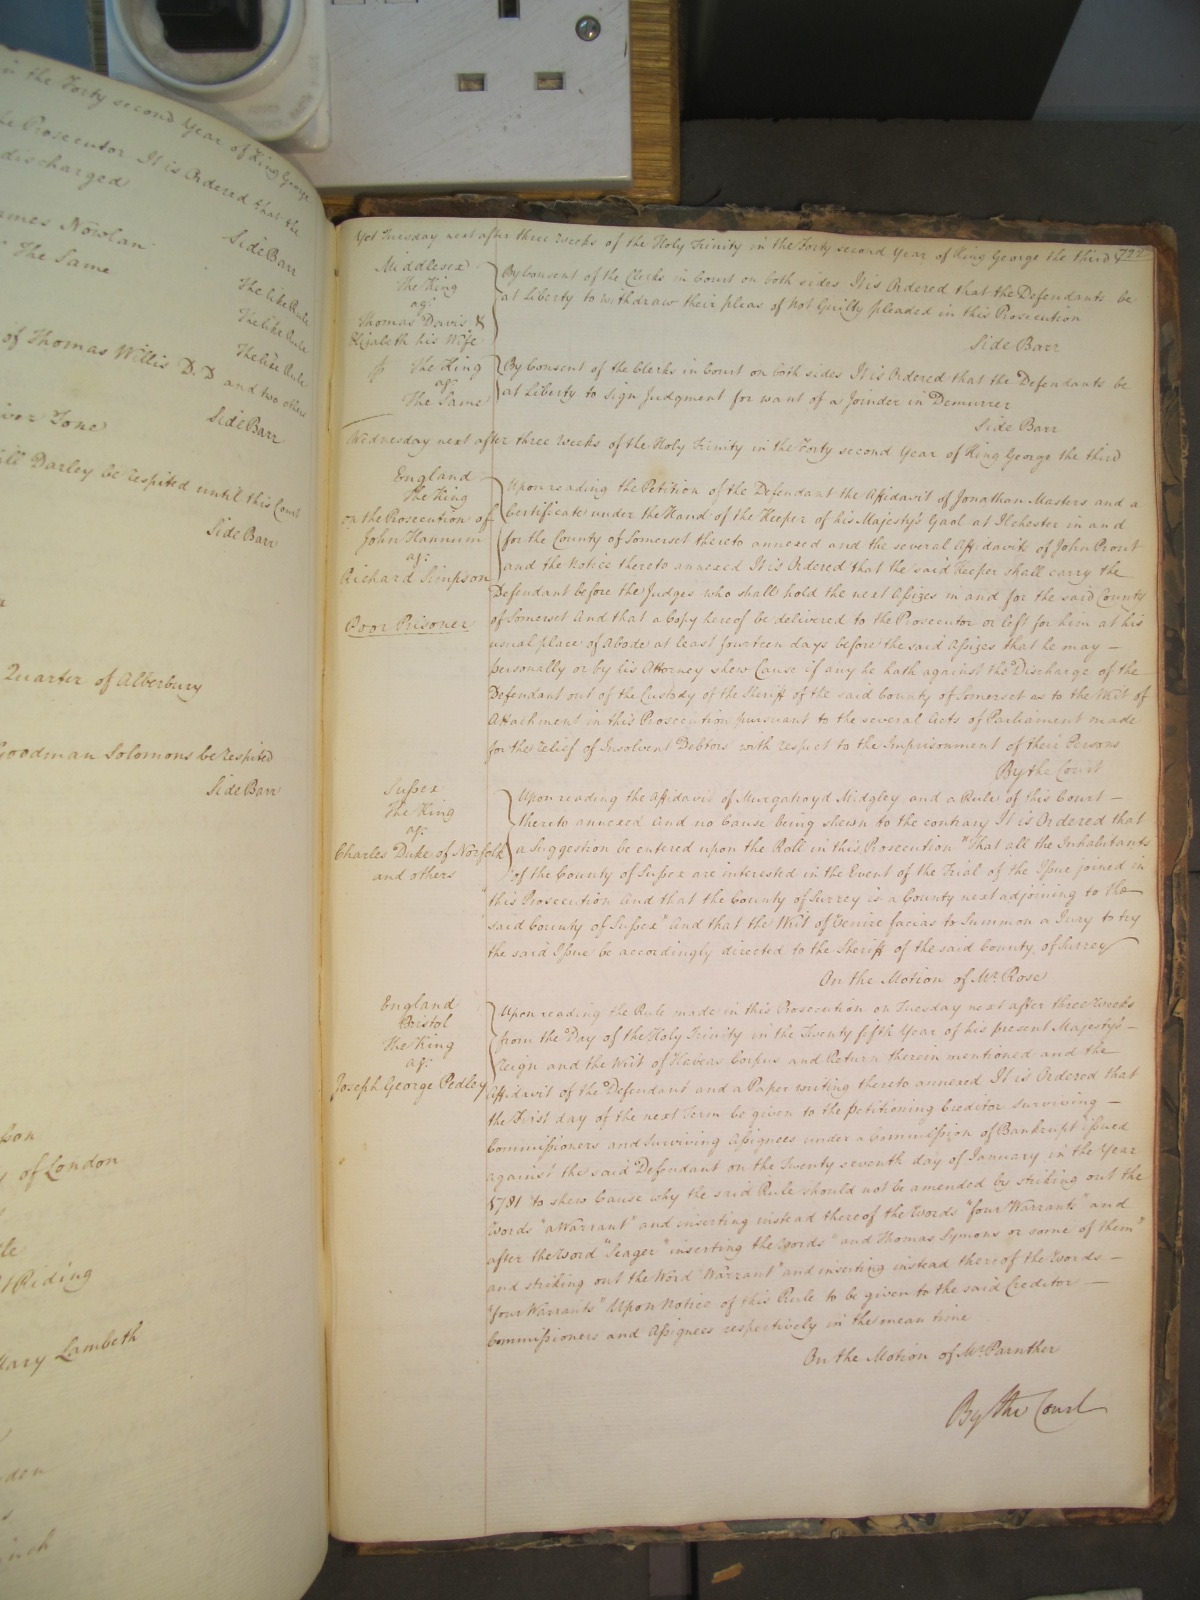 in the Forty second Year of King George
the Prosecutor It is Ordered that the
discharged
Side Barr
James Nowlan
The Same
The like Rule
The like Rule
The like Rule
of Thomas Willis D. D and two others
Side Barr
Tone
Darley be respited until this Court
Side Barr
Quarter of Alberbury
Goodman Solomons be respited
Side Barr
of London
Riding
Mary Lambeth
Yet Tuesday next after three Weeks of the Holy Trinity in the Forty second Year of King George the third 722
Middlesex
The King
agt
Thomas Davis &
Elizabeth his Wife
By Consent of the Clerks in Court on both sides It is Ordered that the Defendants be
at Liberty to withdraw their pleas of Not Guilty pleaded in this Prosecution
Side Barr
The King
agt
The Same
By Consent of the Clerks in Court on both sides It is Ordered that the Defendants be
at Liberty to sign Judgment for want of a Joinder in Demurrer
Side Barr
Wednesday next after three Weeks of the Holy Trinity in the Forty second Year of King George the third
England
The King
on the Prosecution of
John Hannum
agt
Richard Simpson
Poor Prisoner
Upon reading the Petition of the Defendant the Affidavit of Jonathan Masters and a
Certificate under the Hand of the Keeper of his Majesty's Gaol at Ilchester in and
for the County of Somerset thereto annexed and the several Affidavits of John Prout
and the Notice thereto annexed It is Ordered that the said Keeper shall carry the
Defendant before the Judges who shall hold the next Assizes in and for the said County
of Somerset And that a Copy hereof be delivered to the Prosecutor or left for him at his
usual place of Abode at least fourteen days before the said Assizes that he may —
personally or by his Attorney shew Cause if any he hath against the Discharge of the
Defendant out of the Custody of the Sheriff of the said County of Somerset as to the Writ of
Attachment in this Prosecution pursuant to the several Acts of Parliament made
for the relief of Insolvent Debtors with respect to the Imprisonment of their Persons
By the Court
Sussex
The King
agt
Charles Duke of Norfolk
and others
Upon reading the Affidavit of Murgatroyd Midgley and a Rule of this Court —
thereto annexed And no Cause being shewn to the contrary It is Ordered that
a Suggestion be entered upon the Roll in this Prosecution "That all the Inhabitants
" of the County of Sussex are interested in the Event of the Trial of the Issue joined in
" this Prosecution And that the County of Surrey is a County next adjoining to the
" said County of Sussex" And that the Writ of Venire facias to Summon a Jury to try
the said Issue be accordingly directed to the Sheriff of the said County of Surrey
On the Motion of Mr. Rose
England
Bristol
The King
agt
Joseph George Pedley
Upon reading the Rule made in this Prosecution on Tuesday next after three Weeks
from the Day of the Holy Trinity in the Twenty fifth Year of his present Majesty's —
Reign and the Writ of Habeas Corpus and Return therein mentioned and the
Affidavit of the Defendant and a Paper writing thereto annexed It is Ordered that
the First day of the next Term be given to the petitioning Creditor surviving —
Commissioners and surviving Assignees under a Commission of Bankrupt issued
against the said Defendant on the Twenty seventh day of January in the Year
1781 to shew Cause why the said Rule should not be amended by striking out the
Words "a Warrant" and inserting instead thereof the Words "four Warrants" and
after the Word "Seager" inserting the Words "and Thomas Symons or some of them"
and striking out the Word "Warrant" and inserting instead thereof the Words —
"four Warrants" Upon Notice of this Rule to be given to the said Creditor —
Commissioners and Assignees respectively in the mean time
On the Motion of Mr. Parnther
By the Court